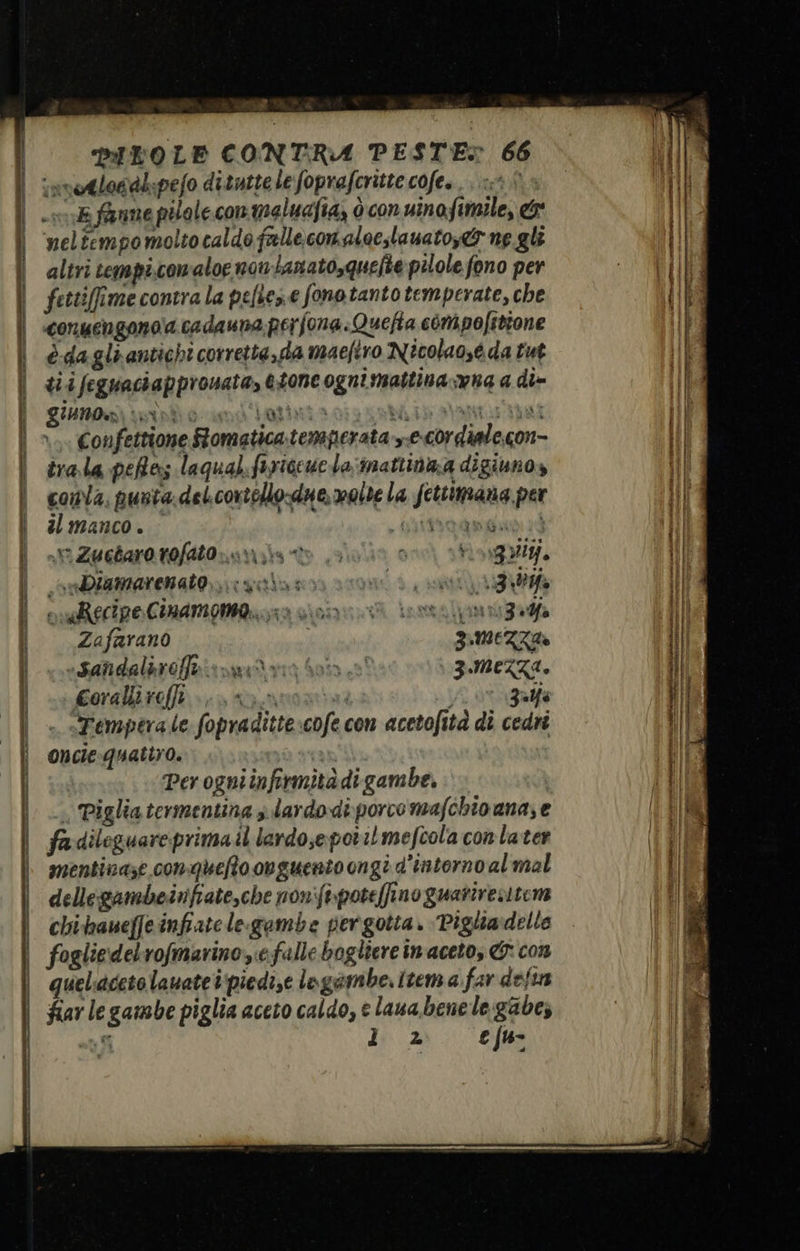 PILOLE CONTRA PESTE. 66
Aloe al peſo di tutte le ſopraſcritte coſe.
E fanne pilole con maluaſia, ò con uino ſimile, &
nel tempo molto caldo falle con aloe, lauato, & ne gli
altri tempi con aloe non lauato, queſte pilole ſono per
fettiſſime contra la peſte, e ſono tanto temperate, che
conuengono a cadauna perſona. Queſta compoſitione
è da gli antichi corretta, da maeſtro Nicolao, é da tut
ti i ſeguaci approuata, e tone ogni mattina vna a di-
giuno.
Confettione Stomatica temperata, e cordiale con-
tra la peſte, laqual ſi riceue la mattina a digiuno,
con la, punta del cortello due, uolte la ſettimana per
il manco.
Zuccaro roſato ʒ viij.
Diamarenato ʒ iiſs
Recipe Cinamomo ʒ ſs
Zafarano ʒ. mezza
Sandali roſſi ʒ. mezza.
Coralli roſſi ʒ. ſs
Tempera le ſopraditte coſe con acetoſità di cedri
oncie quattro.
Per ogni infirmità di gambe.
Piglia termentina, lardo di porco maſchio ana, e
fa dileguare prima il lardo, e poi il meſcola con la ter
mentina, e con queſto onguento ongi d'intorno al mal
delle gambe infiate, che non ſi poteſſino guarire. item
chi haueſſe infiate le gambe per gotta. Piglia delle
foglie del roſmarino, e falle bogliere in aceto, & con
quel aceto lauate i piedi, e le gambe. item a far deſin
fiar le gambe piglia aceto caldo, e laua bene le gābe,
l 2 e ſu-